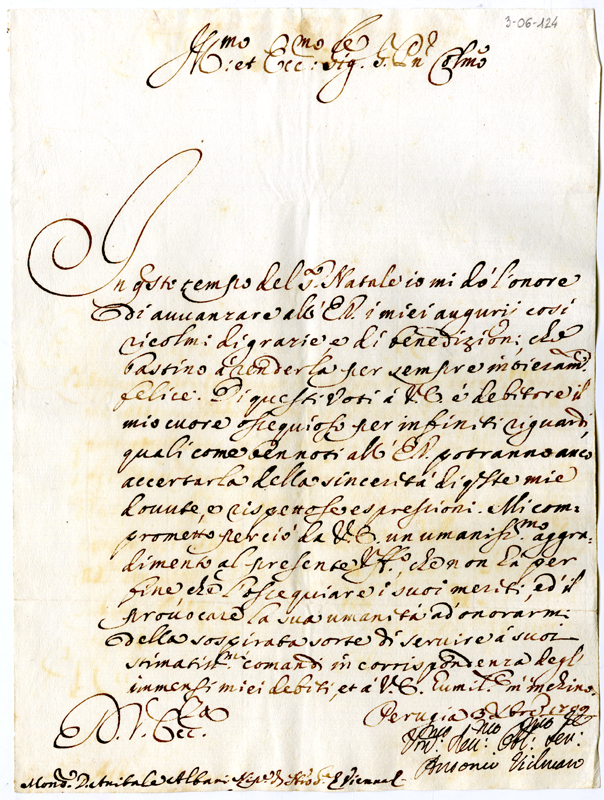 3-06-124
Ill:mo et Ecc:mo Sig.re P.rn Col:mo
In q̃sto tempo del S. Natale io mi dò l'onore
di avvanzare all'E.V. i miei augurij così
ricolmi di grazie e di benedizioni, che
bastino à renderla per sempre intieram.te
felice. Di questi voti à V.E. é debitore il
mio cuore ossequioso per infiniti riguardi,
quali come ben noti all'E.V. potranno anco
accertarla della sincerità di q̃ste mie
dovute, e rispettose espressioni. Mi com=
prometto perciò da V.E. un umaniss.mo aggra=
dimento al presente che non ha per
fine che l'ossequiare i suoi meriti, ed il
provocare la sua umanità ad onorarmi
della sospirata sorte di servire à suoi
stimatiss.mi comandi in corrispondenza degl'
immensi miei debiti, et à V.E. humil.te m'inchino.
D. V. Ecc.za
Perugia
Um: Dev: Obl: Ser:
Antonio
Mons. D. Annibale Albani Vienna